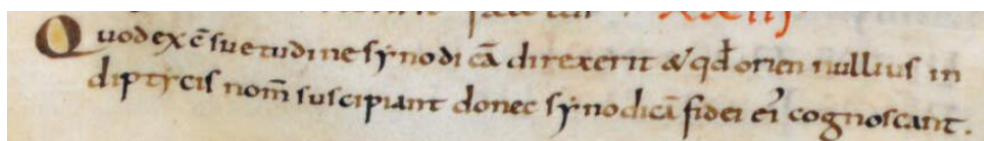 Quod ex c̄suetudine synodicā direxerit & qđ orien nullius in
diptycis nom̄ suscipiant donec synodicā fidei ei᾽ cognoscant.